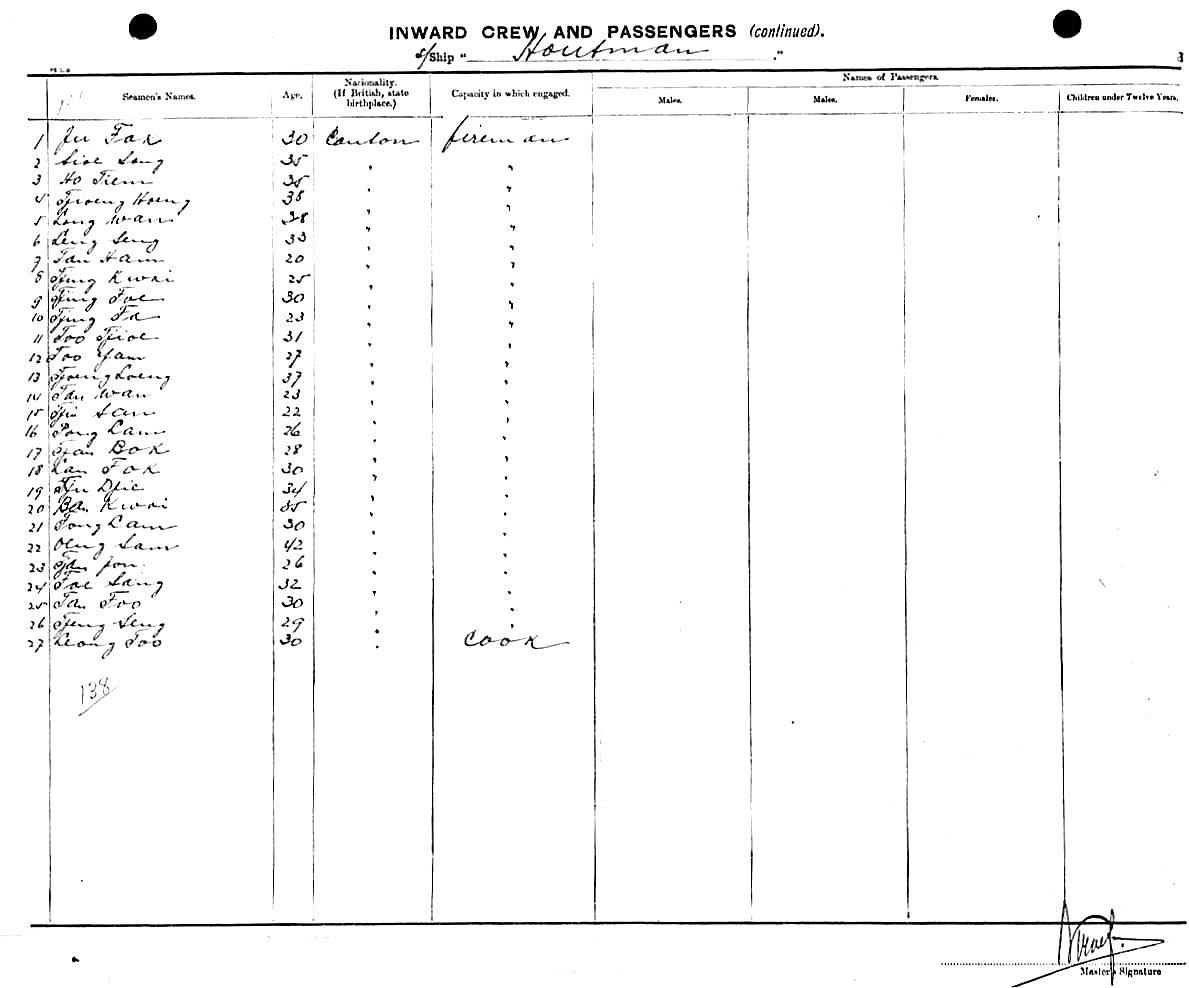 INWARD CREW AND PASSENGERS (continued).
s/Ship " Houtman ."
3
Seamen's Names. Age. Nationality. (If British, state birthplace.) Capacity in which engaged. Names of Passengers.
Males. Males. Females. Children under Twelve Years.
1 Ju Fak 30 Canton fireman
2 Sioe Song 35 " "
3 Ho Tiem 35 " "
4 Tjroeng Hoeng 38 " "
5 Long Wan 38 " "
6 Leng Seng 33 " "
7 Tan Ham 20 " "
8 Tjing Kwai 25 " "
9 Tjing Foe 30 " "
10 Tjing Fa 23 " "
11 Too Tjioe 31 " "
12 Too Yam 27 " "
13 Tjoeng Loeng 37 " "
14 Tan Wan 23 " "
15 Tjin Sam 22 " "
16 Tong Lam 26 " "
17 Tjan Bok 28 " "
18 Lan Fok 30 " "
19 Tju Djie 34 " "
20 Ban Kwai 35 " "
21 Tong Lam 30 " "
22 Oeng Sam 42 " "
23 Tjan Jon 26 " "
24 Foe Sang 32 " "
25 Tan Foo 30 " "
26 Tjeng Seng 29 " "
27 Leong Too 30 " Cook
138
Master's Signature